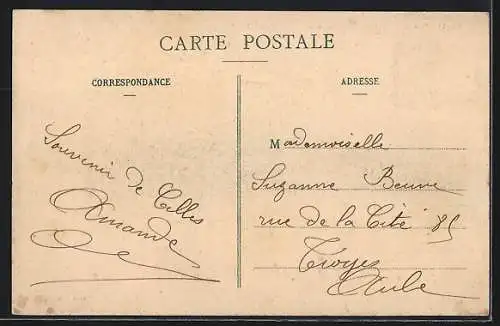 CARTE POSTALE
CORRESPONDANCE
Souvenir de Celles
Amande
ADRESSE
Mademoiselle
Suzanne Beuve
rue de la Cité 85
Troyes
Aube